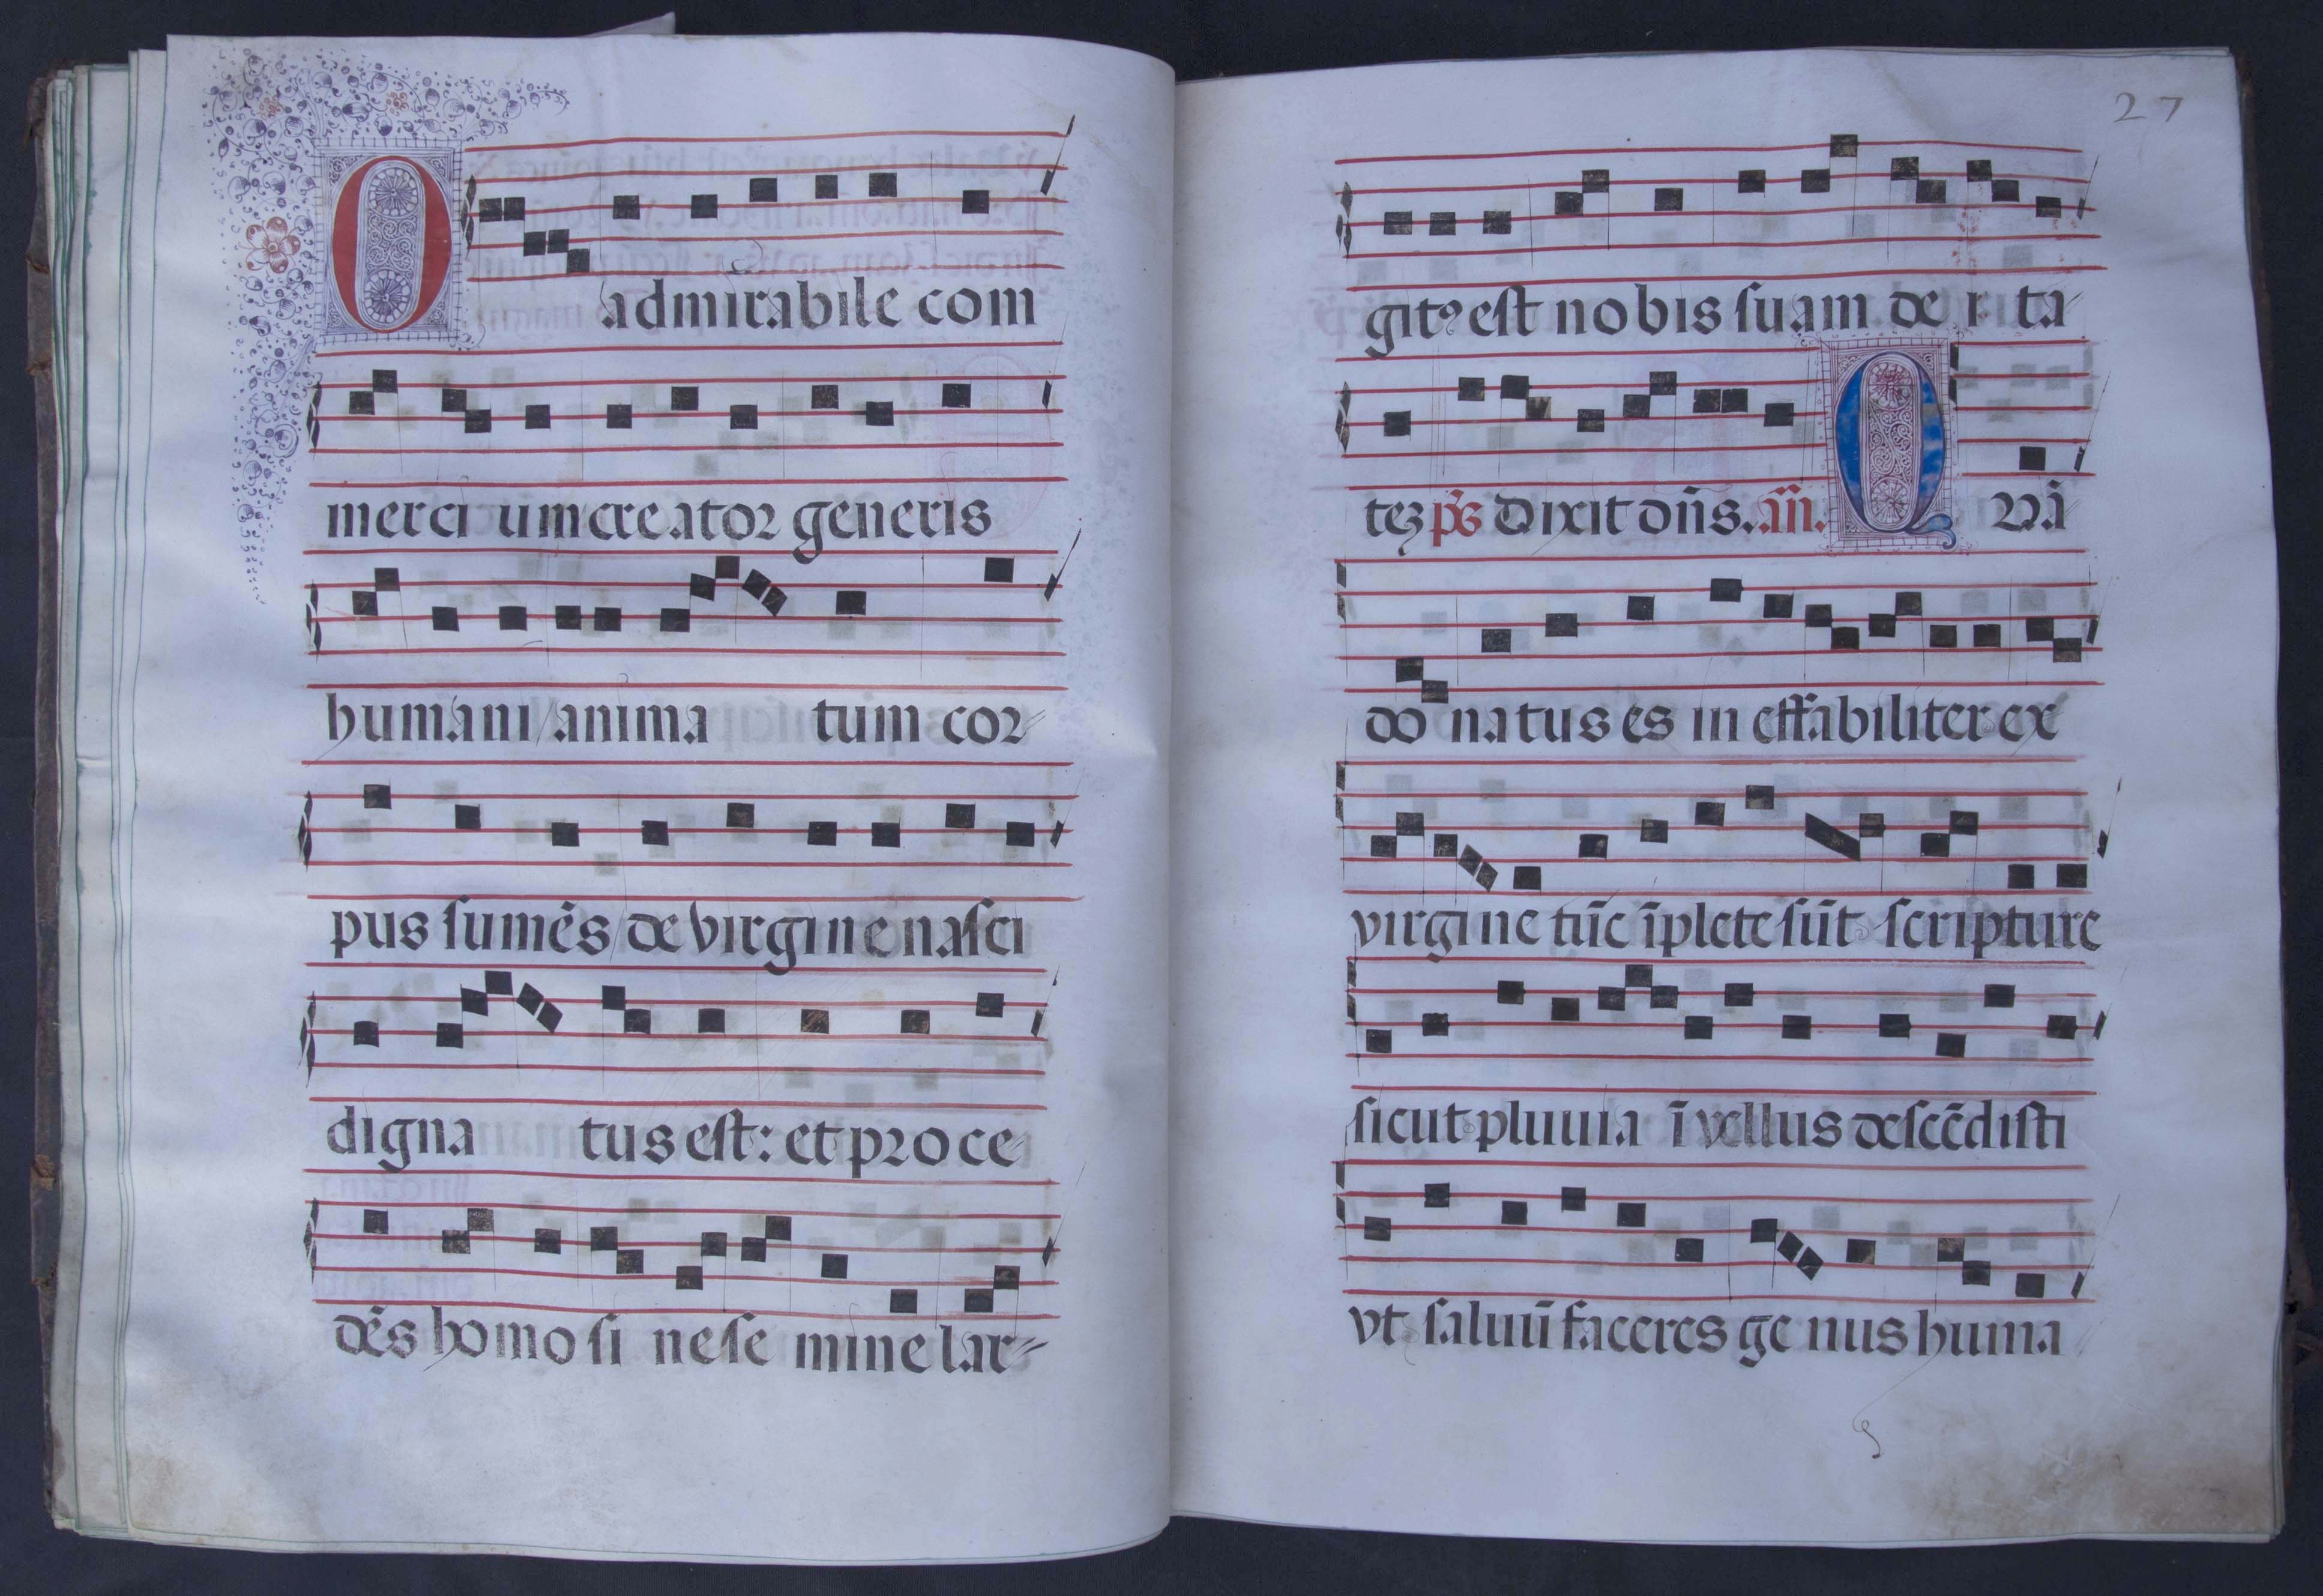 O admirabile com
merci um creator generis
humani anima tum cor
pus sumēs de virgine nasci
digna tus est: et proce
dēs homo si ne semine lar
27
gitꝰ est nobis suam de i ta
teʒ p̄s Dixit dn̄s. an̄. Q vā
do natus es in effabiliter ex
virgine tūc īplete sūt scripture
sicut pluuia ī vellus descēdisti
vt saluū faceres ge nus huma